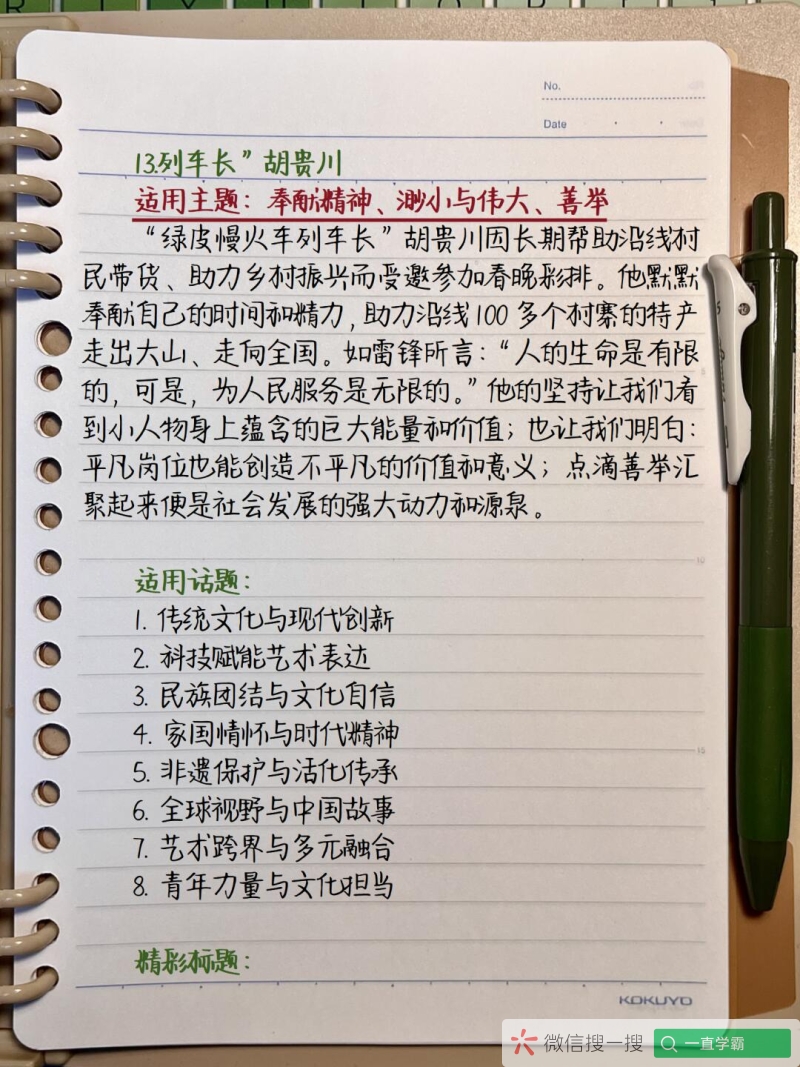 No.
Date
13.列车长”胡贵川
适用主题：奉献精神、渺小与伟大、善举
“绿皮慢火车列车长”胡贵川因长期帮助沿线村
民带货、助力乡村振兴而受邀参加春晚彩排。他默默
奉献自己的时间和精力，助力沿线100多个村寨的特产
走出大山、走向全国。如雷锋所言：“人的生命是有限
的，可是，为人民服务是无限的。”他的坚持让我们看
到小人物身上蕴含的巨大能量和价值；也让我们明白：
平凡岗位也能创造不平凡的价值和意义；点滴善举汇
聚起来便是社会发展的强大动力和源泉。
适用话题：
1. 传统文化与现代创新
2. 科技赋能艺术表达
3. 民族团结与文化自信
4. 家国情怀与时代精神
5. 非遗保护与活化传承
6. 全球视野与中国故事
7. 艺术跨界与多元融合
8. 青年力量与文化担当
精彩标题：
KOKUYO
微信搜一搜 一直学霸